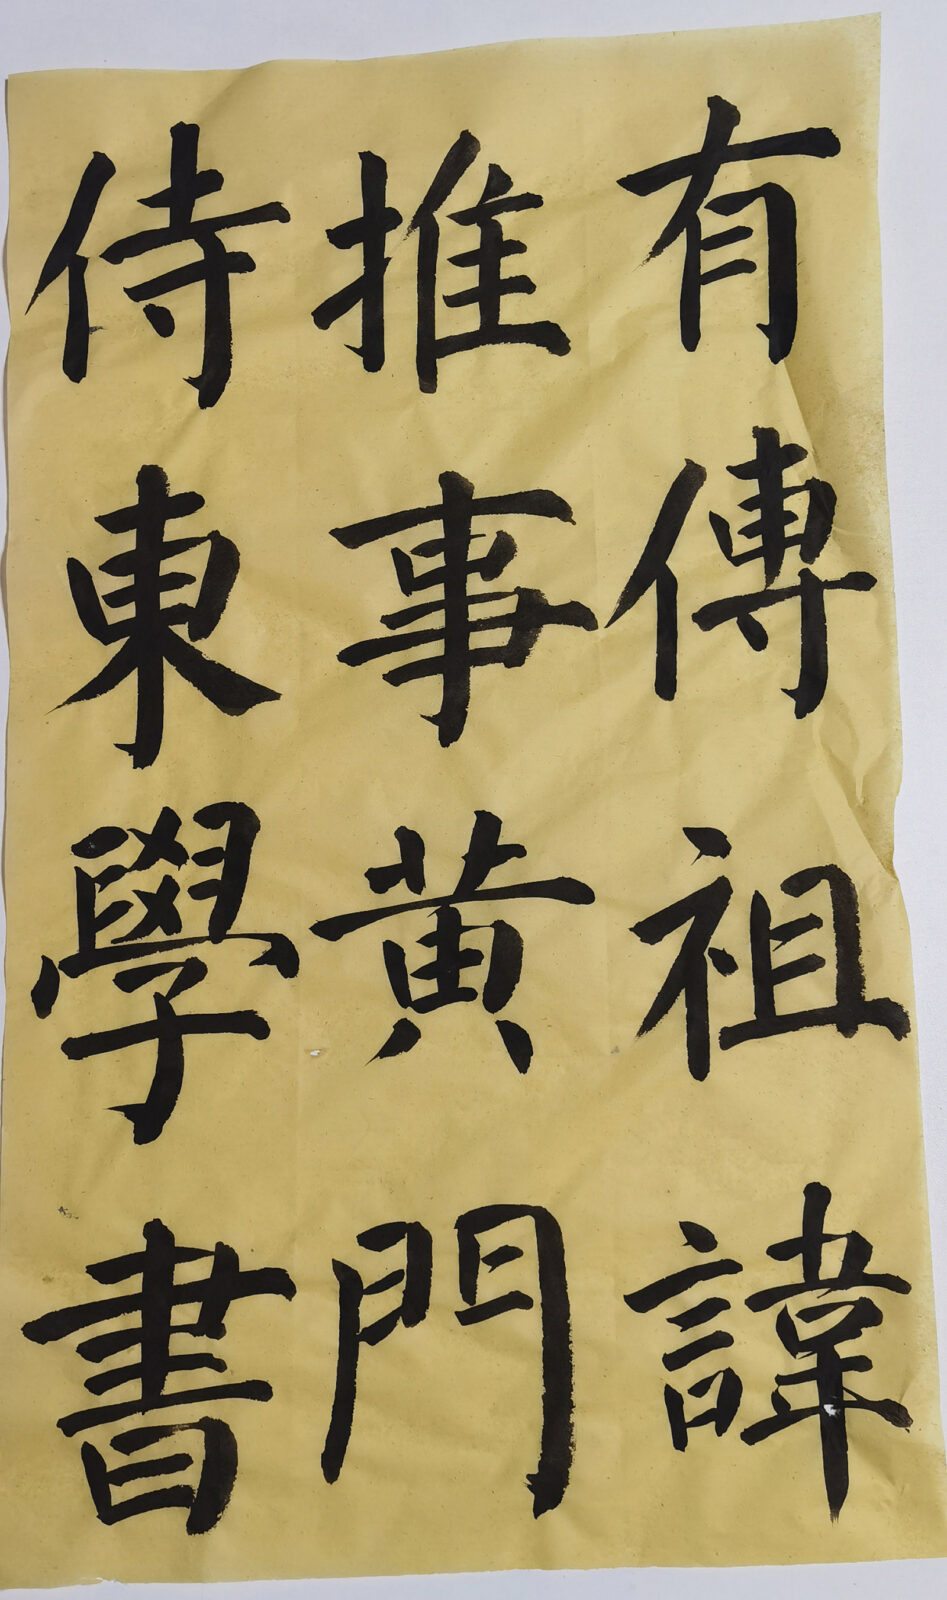 有傳祖諱
推事黃門
侍東學書